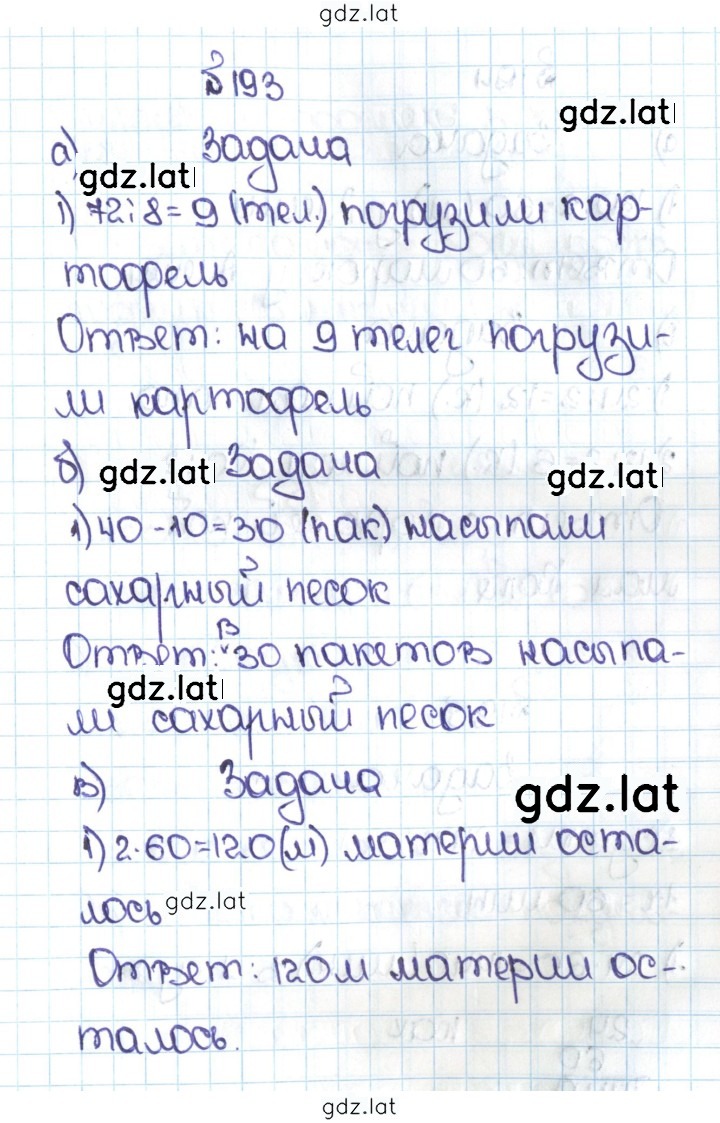 gdz.lat
№193
gdz.lat
а) Задача
gdz.lat
1) 72:8=9 (тел.) погрузили кар-
тофель
Ответ: на 9 телег погрузи-
ли картофель
б) gdz.lat Задача gdz.lat
1) 40-10=30 (пак) насыпали
сахарный песок
Ответ: в 30 пакетов насыпа-
gdz.lat
ли сахарный песок
в) Задача
gdz.lat
1) 2·60=120(м) материи оста-
лось gdz.lat
Ответ: 120м материи ос-
талось.
gdz.lat